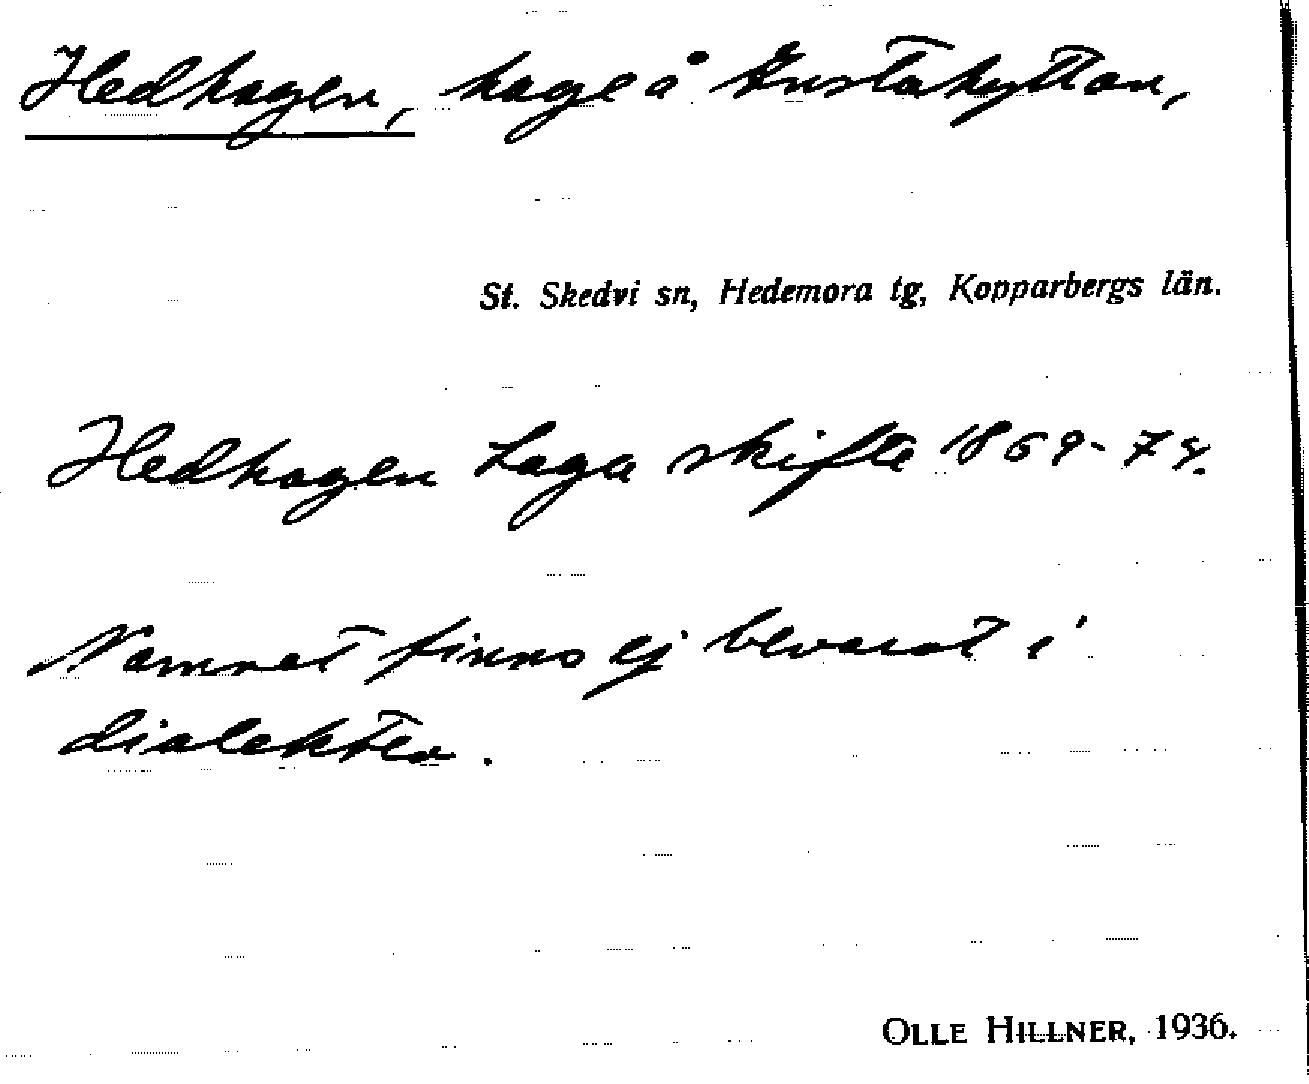 Hedhagen, hage å Gustahyttan,
St. Skedvi sn, Hedemora tg, Kopparbergs län.
Hedhagen Laga skifte 1869-74.
Namnet finns ej bevarat i
dialekten.
OLLE HILLNER, 1936.